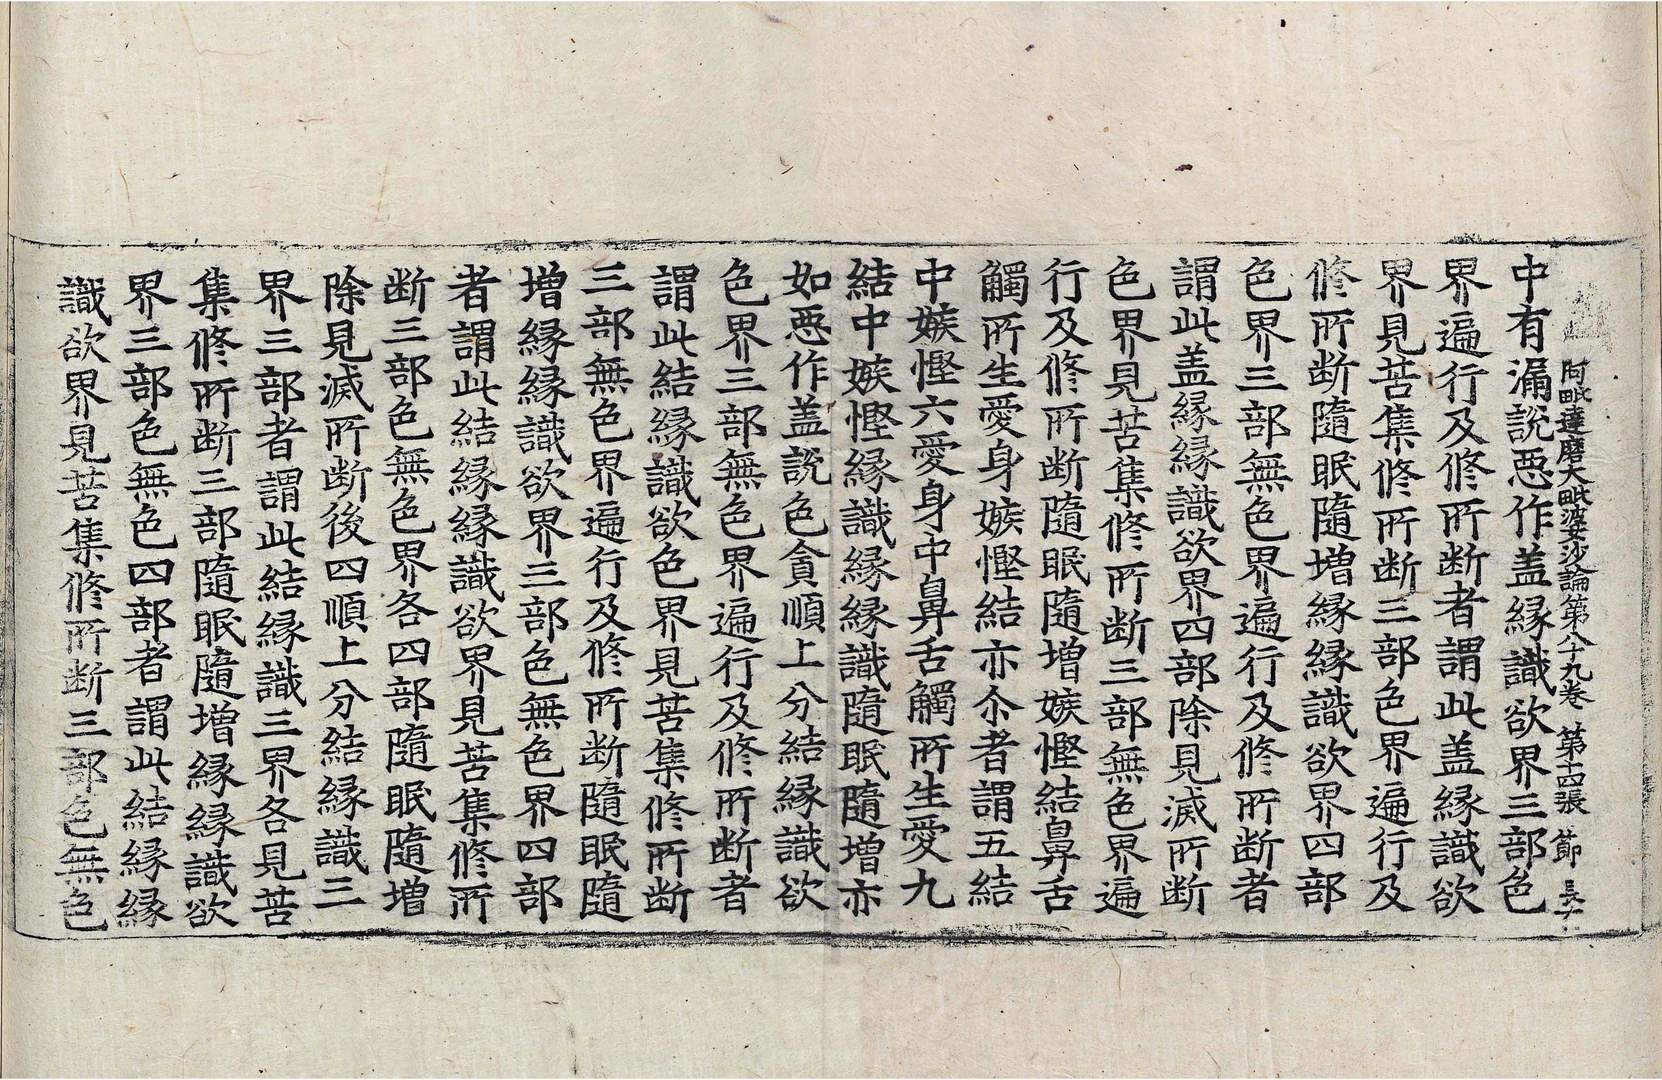 阿毗達磨大毗婆沙論第八十九卷 第十四張 節
中有漏說惡作盖緣識欲界三部色
界遍行及修所断者謂此盖緣識欲
界見苦集修所断三部色界遍行及
修所断隨眠隨增緣緣識欲界四部
色界三部無色界遍行及修所断者
謂此盖緣緣識欲界四部除見滅所断
色界見苦集修所断三部無色界遍
行及修所断隨眠隨增嫉慳結鼻舌
觸所生愛身嫉慳結亦尒者謂五結
中嫉慳六愛身中鼻舌觸所生愛九
結中嫉慳緣識緣緣識隨眠隨增亦
如惡作盖說色貪順上分結緣識欲
色界三部無色界遍行及修所断者
謂此結緣識欲色界見苦集修所断
三部無色界遍行及修所断隨眠隨
增緣緣識欲界三部色無色界四部
者謂此結緣緣識欲界見苦集修所
断三部色無色界各四部隨眠隨增
除見滅所断後四順上分結緣識三
界三部者謂此結緣識三界各見苦
集修所断三部隨眠隨增緣緣識欲
界三部色無色四部者謂此結緣緣
識欲界見苦集修所断三部色無色